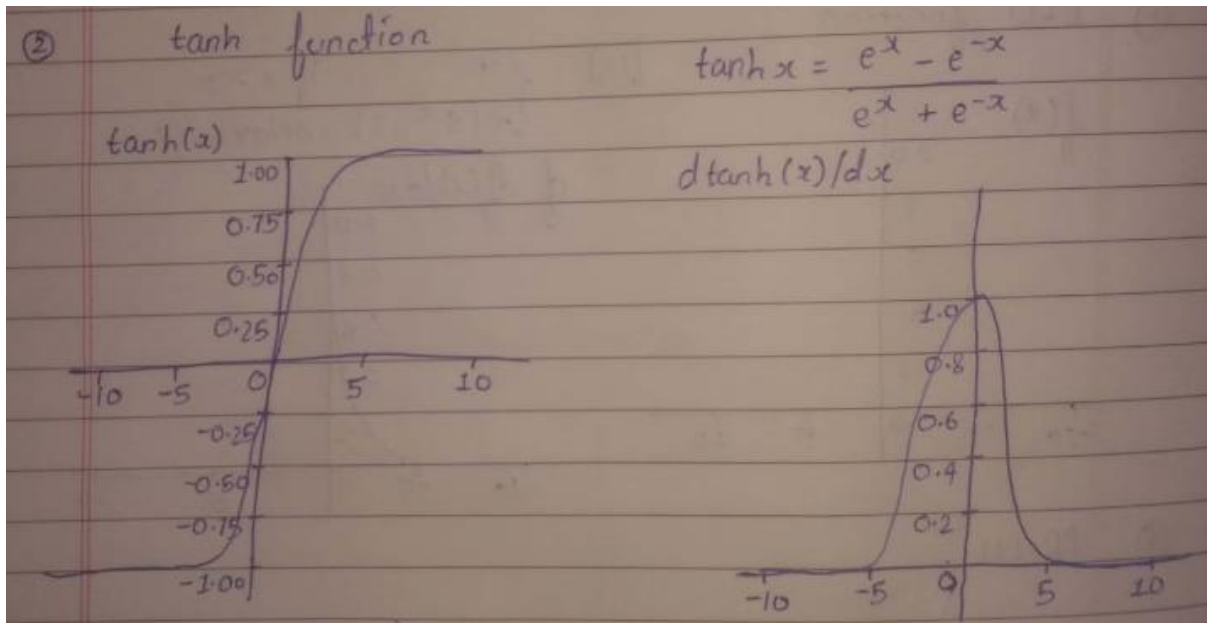 ② tanh function
tanh x = e^x - e^-x / e^x + e^-x
tanh(x)
1.00
0.75
0.50
0.25
-10 -5 0 5 10
-0.25
-0.50
-0.75
-1.00
d tanh(x)/dx
1.0
0.8
0.6
0.4
0.2
-10 -5 0 5 10